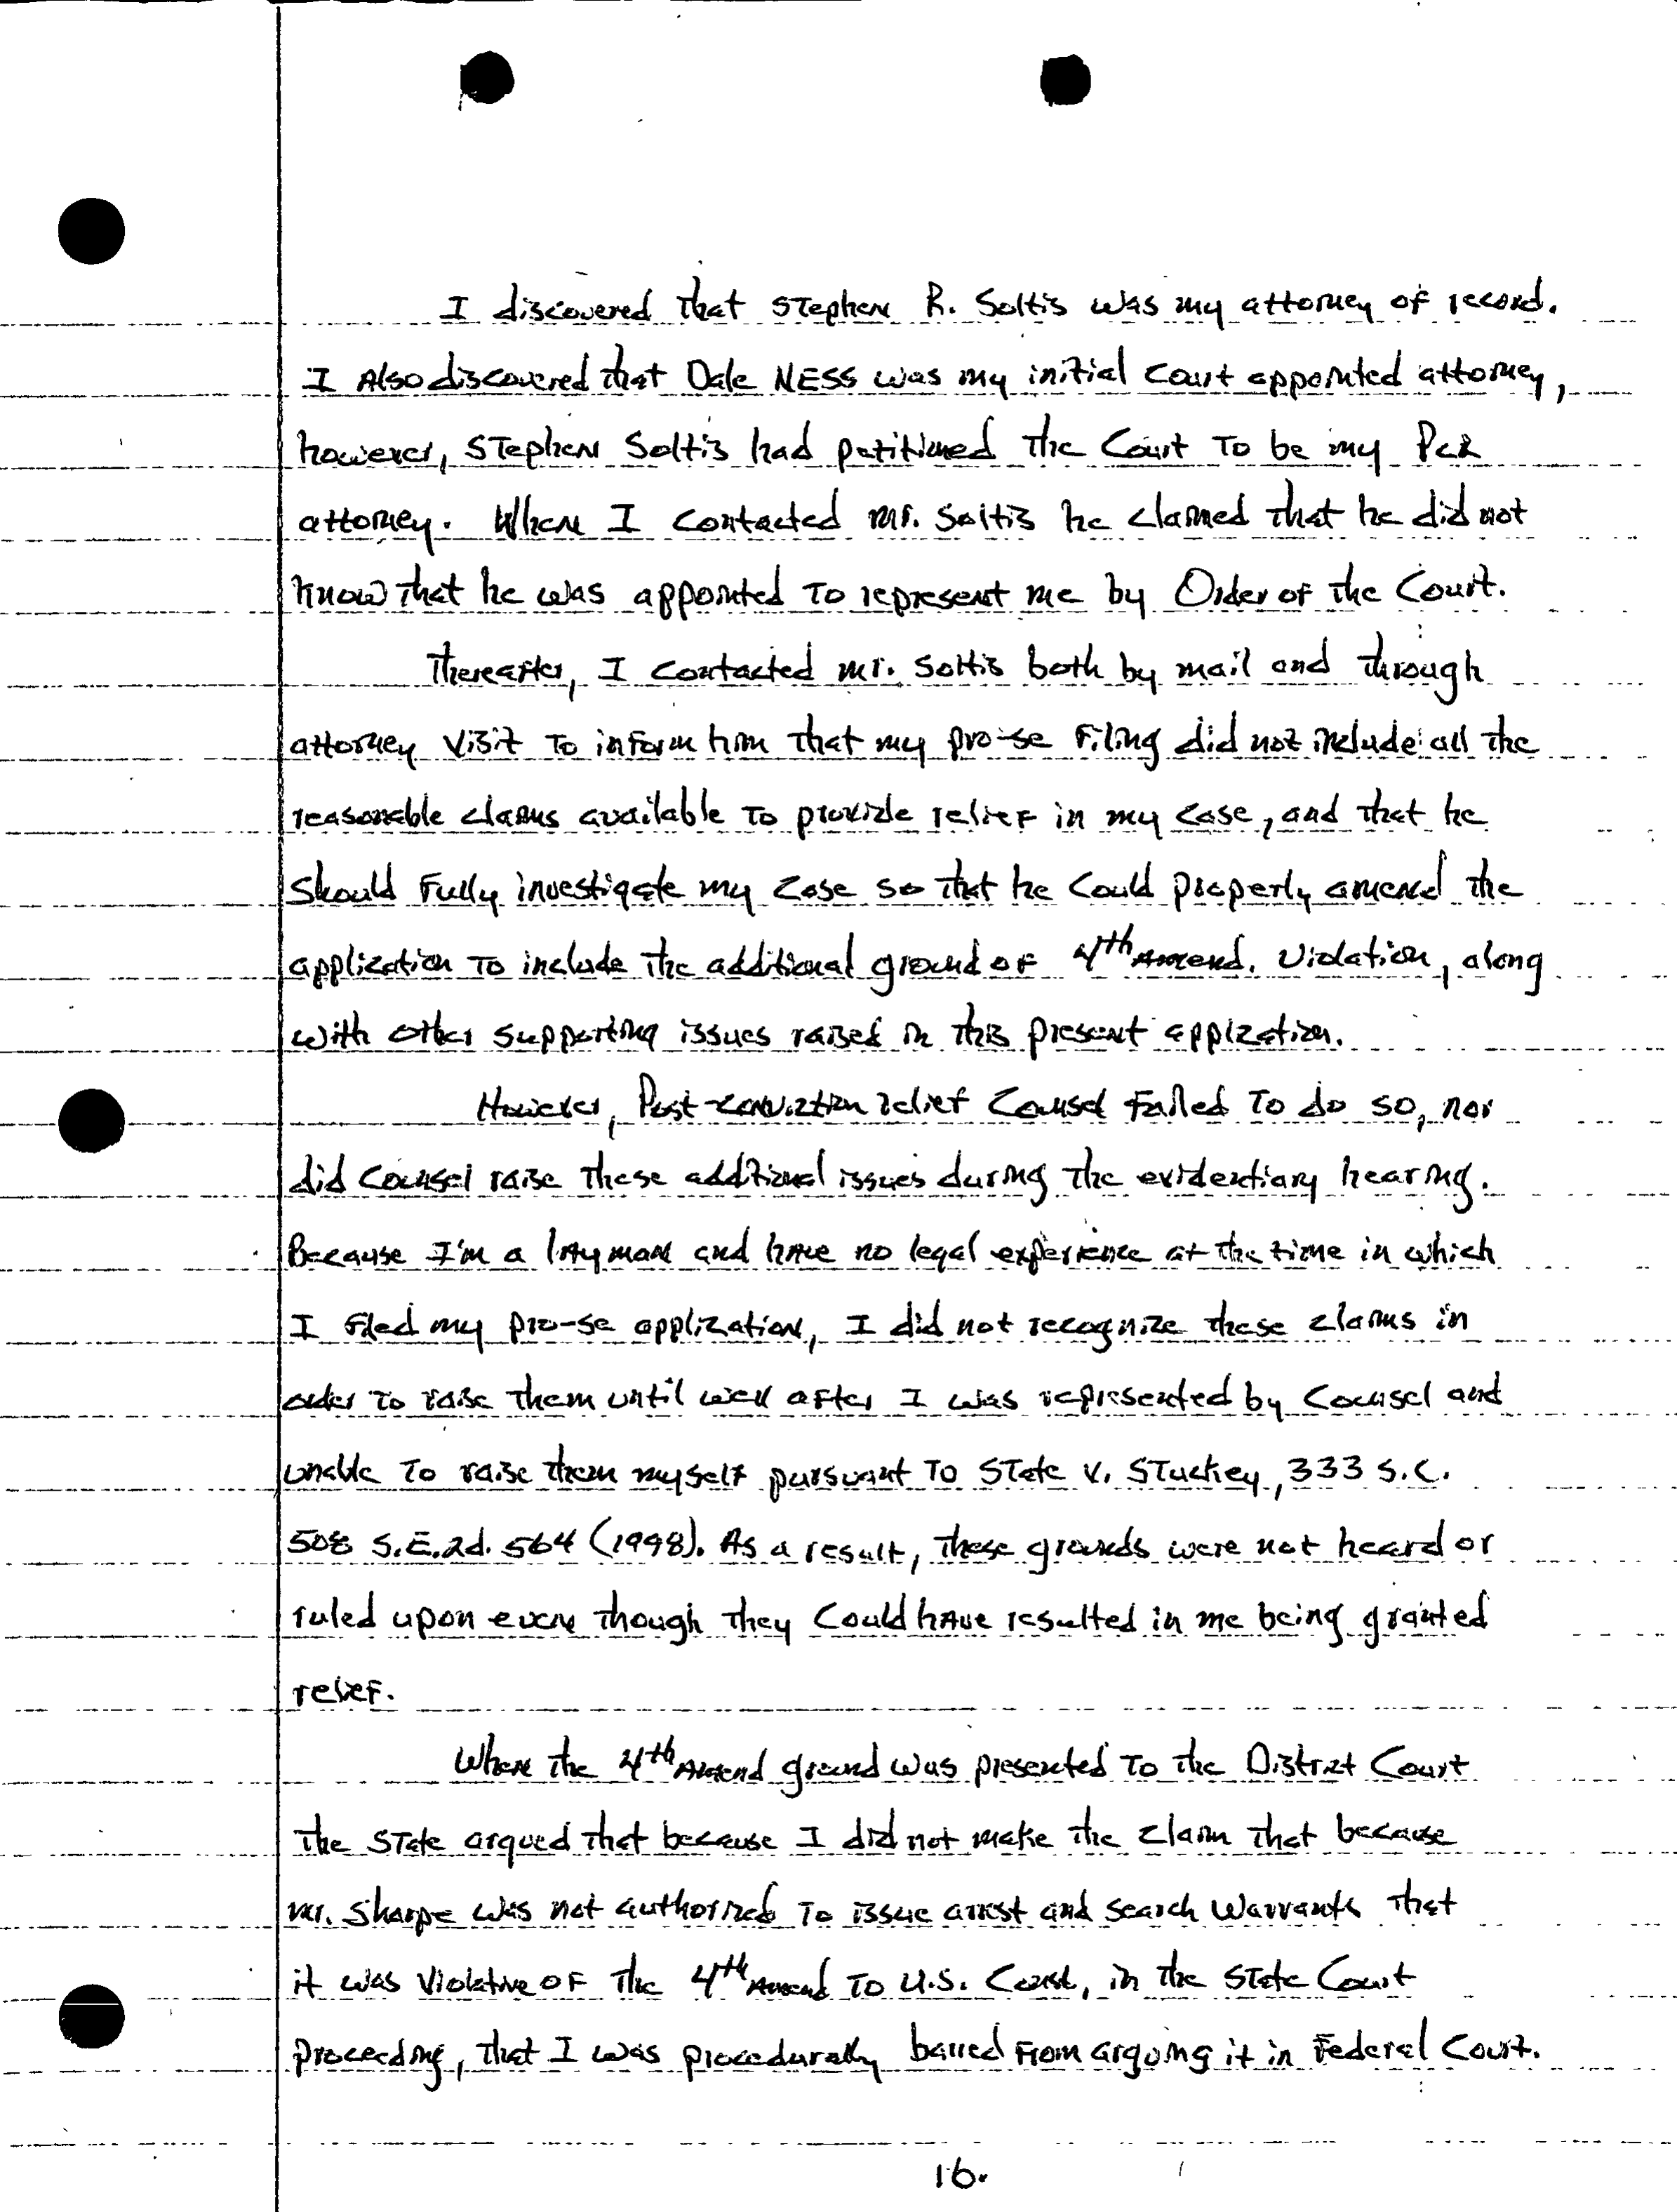 I discovered that Stephen R. Soltis was my attorney of record.
I Also discovered that Dale NESS was my initial Court appointed attorney,
however, Stephen Soltis had petitioned the Court To be my PCR
attorney. When I contacted Mr. Soltis he claimed that he did not
know that he was appointed To represent me by Order of the Court.
Thereafter, I contacted Mr. Soltis both by mail and through
attorney visit To inform him that my pro-se Filing did not include all the
reasonable claims available To provide relief in my case, and that he
should Fully investigate my case so that he Could properly amend the
application To include the additional ground of 4th Amend. Violation, along
with other supporting issues raised in this present application.
However, Post-conviction relief Counsel Failed To do so, nor
did Counsel raise these additional issues during the evidentiary hearing.
Because I'm a layman and have no legal experience at the time in which
I filed my pro-se application, I did not recognize these claims in
order To raise them until well after I was represented by Counsel and
unable To raise them myself pursuant To State v. Stuckey, 333 S.C.
508 S.E.2d. 564 (1998). As a result, these grounds were not heard or
ruled upon even though they Could have resulted in me being granted
relief.
When the 4th Amend ground was presented To the District Court
the State argued that because I did not make the claim that because
Mr. Sharpe was not authorized To issue arrest and search Warrants that
it was Violative of the 4th Amend To U.S. Const, in the State Court
Proceeding, that I was procedurally barred From arguing it in Federal Court.
16.